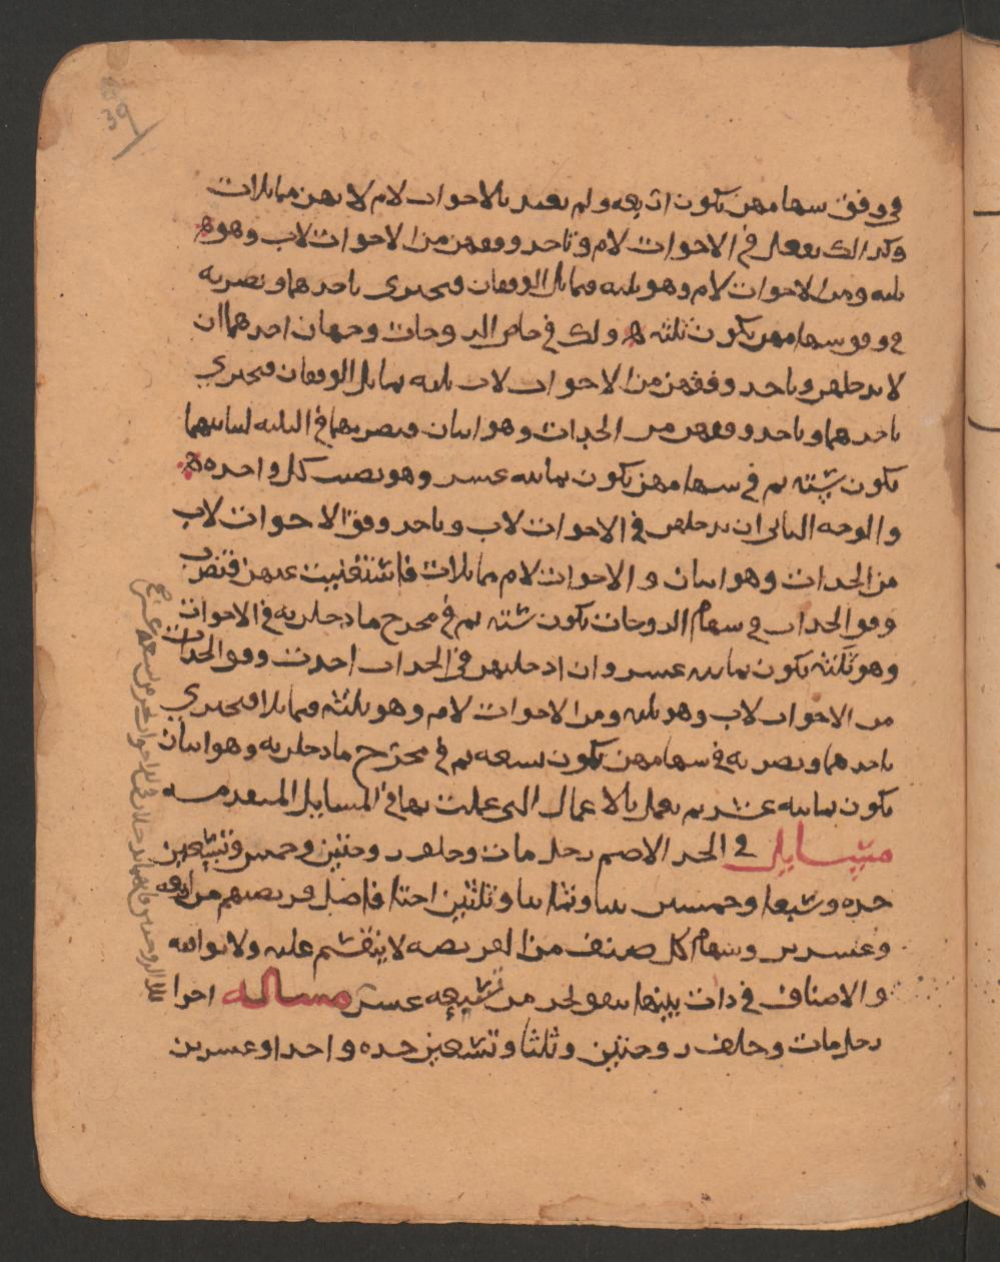 39
في وفق سهامهن تكون اربعه ولم يعتد بالاخوات لام لانهن مماثلات
وكذالك تفعل في الاخوات لام وتاخذ وفقهن من الاخوات لاب وهو
ثلثه ومن الاخوات لام وهو ثلثه فتماثل الوفقان فتجتزي باحدهما وتضربه
في وفق سهامهن تكون ثلثه ولك في خاص الزوجات وجهان احدهما ان
لا تدخلهن وتاخذ وفقهن من الاخوات لاب ثلثه تماثل الوفقان فتجتزي
باحدهما وتاخذ وفقهن من الجدات وهو اثنان فتضربهما في الثلثه لتباينهما
تكون سته ثم في سهامهن تكون ثمانيه عشر وهو نصيب كل واحده
والوجه الثاني ان تدخلهن في الاخوات لاب وتاخذ وفق الاخوات لاب
من الجدات وهو اثنان والاخوات لام مماثلات فاستغنيت عنهن فتضرب
وفق الجدات في سهام الزوجات تكون سته ثم في مخرج ما دخلن به في الاخوات
وهو ثلثه تكون ثمانيه عشر وان ادخلتهن في الجدات اخذت وفق الجدات
من الاخوات لاب وهو ثلثه ومن الاخوات لام وهو ثلثه فتماثلا فتجتزي
باحدهما وتضربه في سهامهن تكون تسعه ثم في مخرج ما دخلن به وهو اثنان
تكون ثمانيه عشر ثم تعمل بالاعمال التي عملت بها في المسايل المتقدمه
مسايل في الجد الاصم رجل مات وخلف زوجتين وخمس وتسعين
جده وسبعا وخمسين بنتا وثلثين اختا فاصل فريضتهم من اربعه
وعشرين وسهام كل صنف من الفريضه لا ينقسم عليه ولا يوافقه
والاصناف في ذات بينها متفق من تسعه عشر مساله اخرا
رجل مات وخلف زوجتين وثلثا وتسعين جده واحدا وعشرين